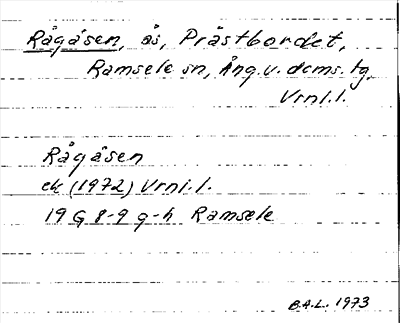 Rågåsen, ås, Prästbordet,
Ramsele sn, Ång. v. doms. tg,
Vrnl.l.
Rågåsen
ek (1972) Vrnl.l.
19 G 8-9 g-h Ramsele
B.A.L. 1973